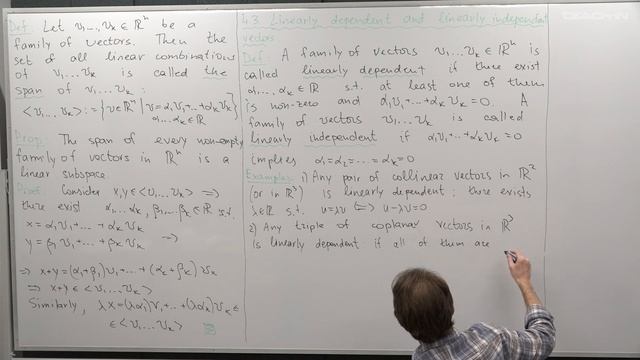 Def. Let v₁,...,vₖ ∈ ℝⁿ be a
family of vectors. Then the
set of all linear combinations
of v₁...vₖ is called the
span of v₁...vₖ:
<v₁...vₖ> := {v∈ℝⁿ | v=α₁v₁+...+αₖvₖ
α₁...αₖ∈ℝ}
Prop. The span of every nonempty
family of vectors in ℝⁿ is a
linear subspace.
Proof. Consider x,y∈<v₁...vₖ> ⇒
there exist α₁...αₖ, β₁,...βₖ∈ℝ s.t.
x=α₁v₁+...+αₖvₖ
y=β₁v₁+...+βₖvₖ ⇒
⇒ x+y=(α₁+β₁)v₁+...+(αₖ+βₖ)vₖ
⇒ x+y∈<v₁...vₖ>
Similarly, λx=(λα₁)v₁+...+(λαₖ)vₖ∈
∈<v₁...vₖ>
4.3 Linearly dependent and linearly independent
vectors
Def. A family of vectors v₁...vₖ∈ℝⁿ is
called linearly dependent if there exist
α₁,...,αₖ∈ℝ s.t. at least one of them
is non-zero and α₁v₁+...+αₖvₖ=0. A
family of vectors v₁...vₖ is called
linearly independent if α₁v₁+...+αₖvₖ=0
implies α₁=α₂=...=αₖ=0
Examples: 1) Any pair of collinear vectors in ℝ²
(or in ℝ³) is linearly dependent: there exists
λ∈ℝ s.t. u=λv ⇔ u-λv=0.
2) Any triple of coplanar vectors in ℝ³
is linearly dependent if all of them are